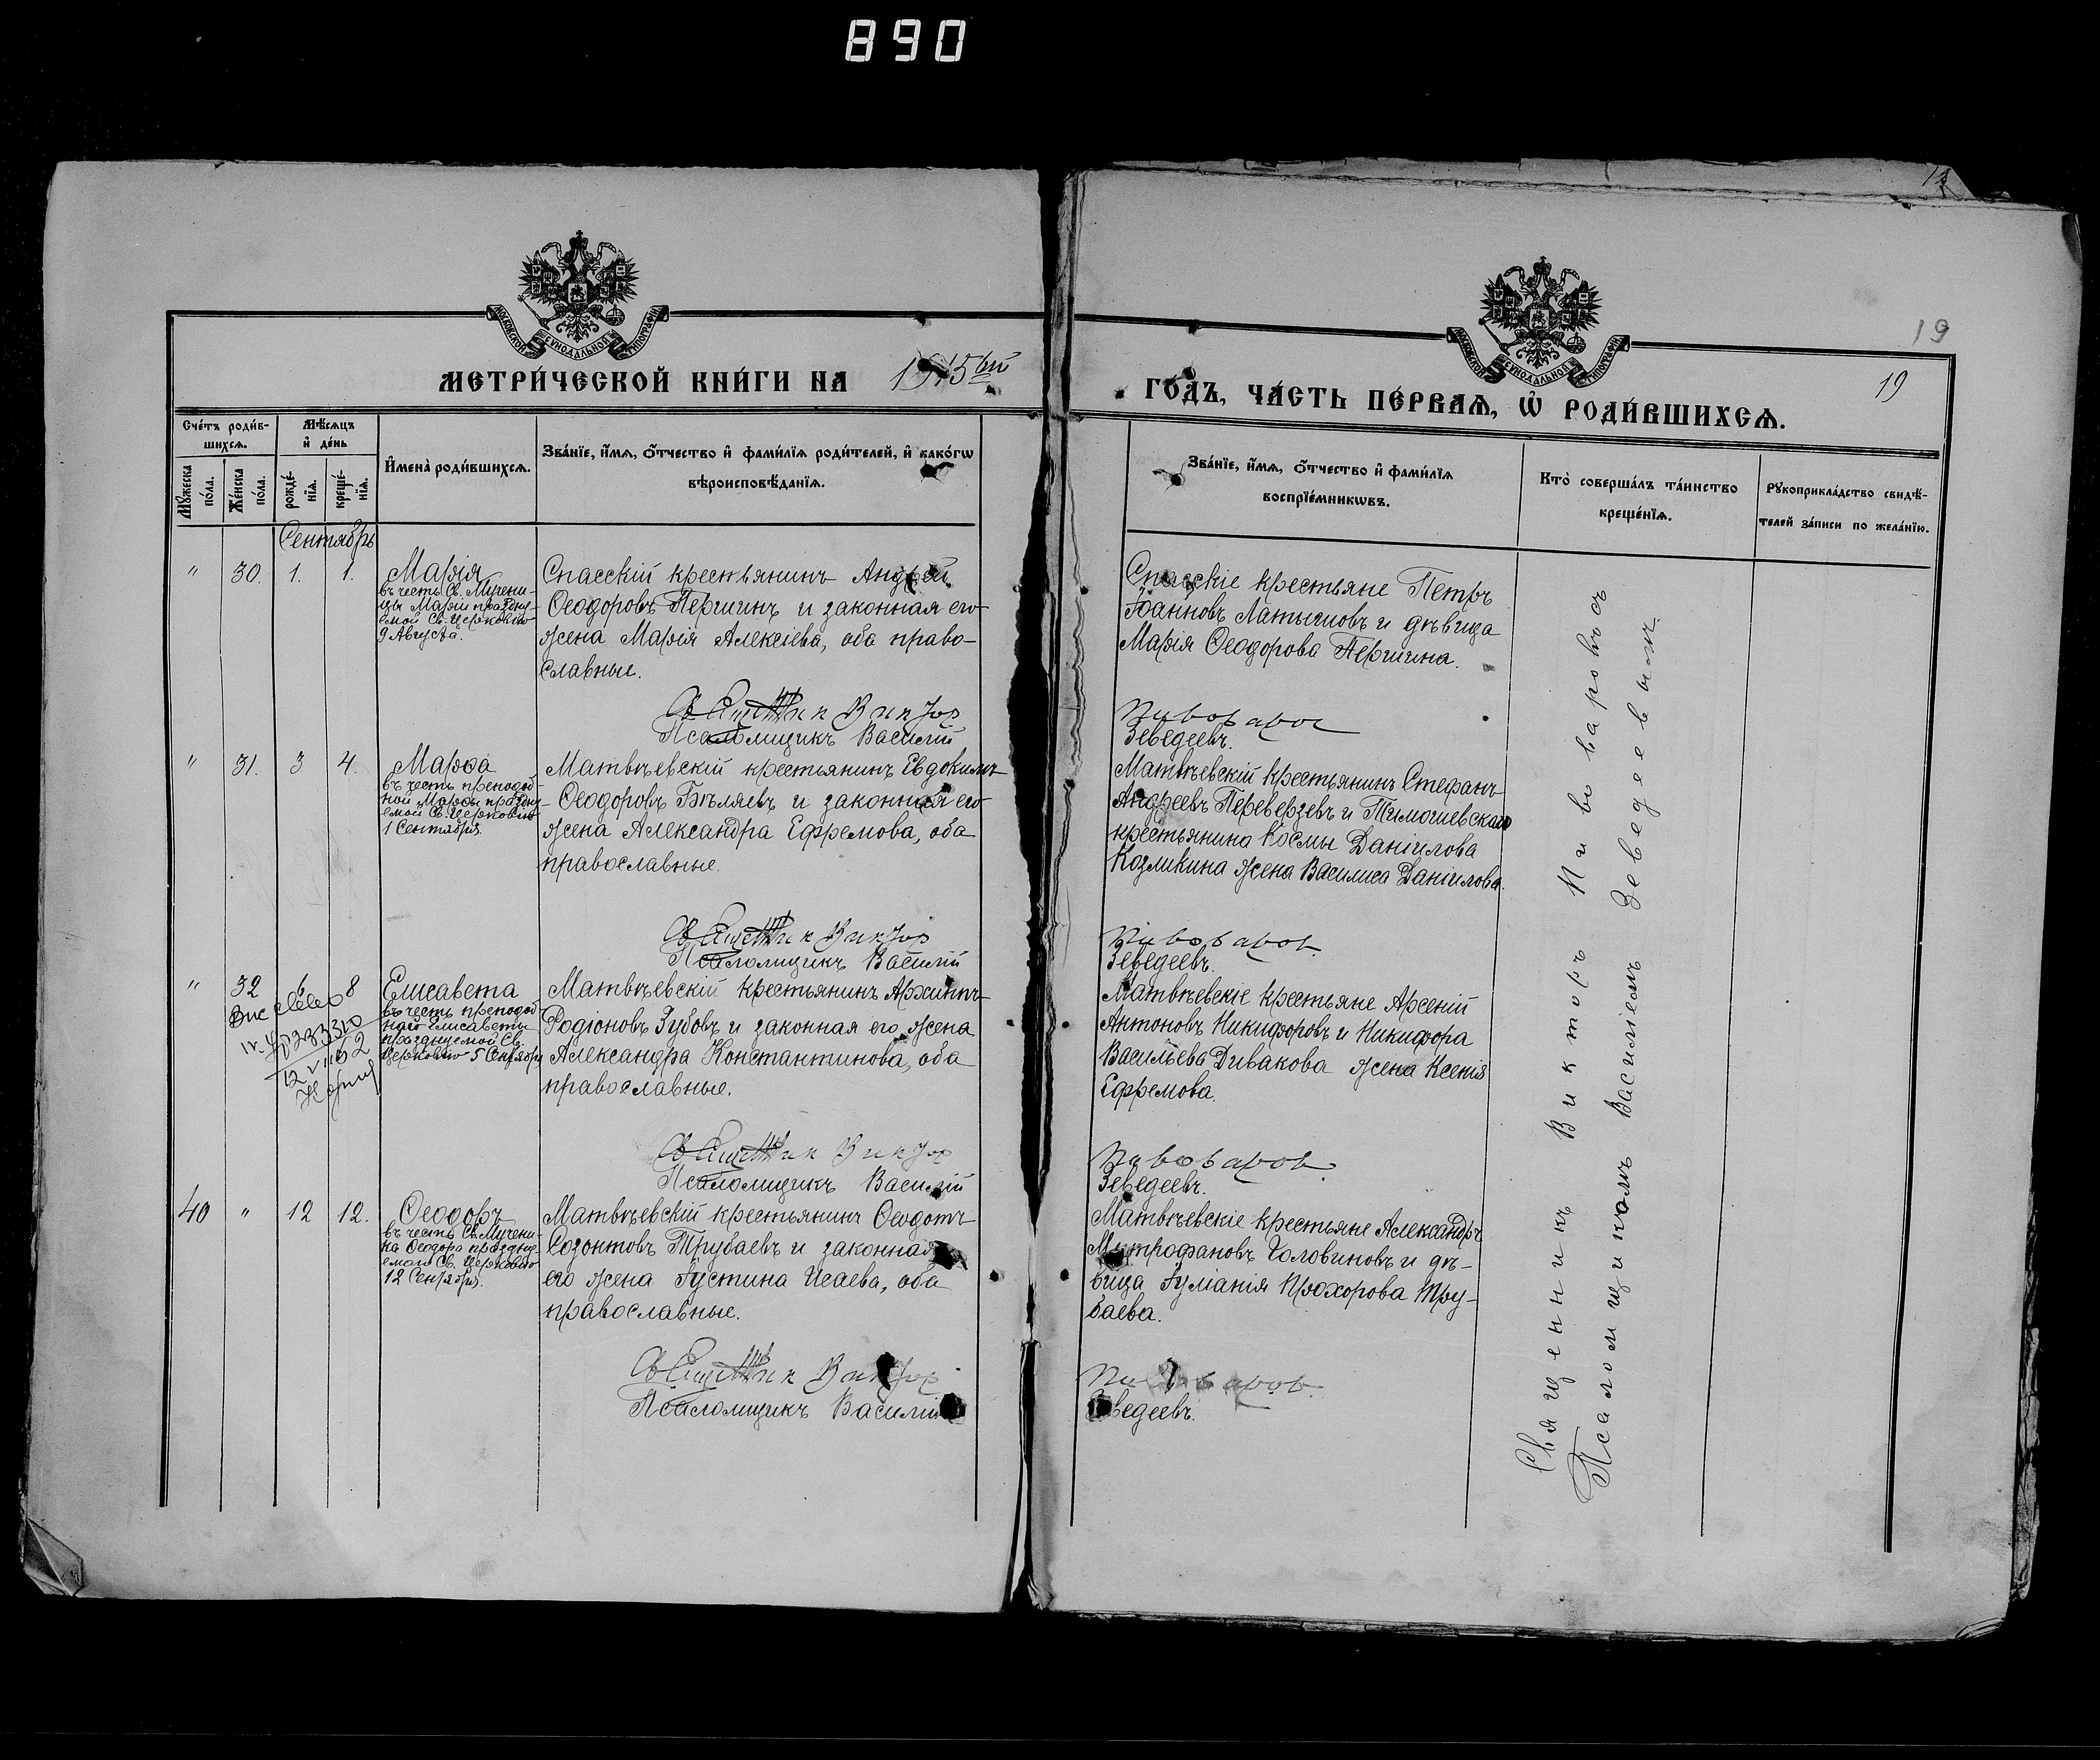 890
19
19
МОСКОВСКОЙ СΥНОДАЛЬНОЙ ТИПОГРАФІИ
МЕТРИ́ЧЕСКОЙ КНИ́ГИ НА 1915ый
МОСКОВСКОЙ СΥНОДАЛЬНОЙ ТИПОГРАФІИ
ГО́ДЪ, ЧА́СТЬ ПЕ́РВАѦ, Ѡ҆ РОДИ́ВШИХСѦ.
Сче́тъ роди́в-
шихсѧ.
Мѣ́сѧцъ
и҆ де́нь
Мꙋ́жеска по́ла.
Же́нска по́ла.
рожде́-
нїѧ.
креще́-
нїѧ.
И҆мена̀ роди́вшихсѧ.
Зва́нїе, и҆́мѧ, ѻ҆́тчество и҆ фами́лїѧ роди́телей, и҆ како́гѡ
вѣроисповѣ́данїѧ.
Зва́нїе, и҆́мѧ, ѻ҆́тчество и҆ фами́лїѧ
воспрїе́мникѡвъ.
Кто̀ соверша́лъ та́инство
креще́нїѧ.
Рꙋкоприкла́дство свидѣ́-
телей за́писи по жела́нїю.
Сентябрь
" 30. 1. 1.
Марія
въ честь Св. Мучени-
цы Маріи праздну-
емой Св. Церковію
9 Августа.
Спасскій крестьянинъ Андрей
Ѳеодоровъ Першинъ и законная его
жена Марія Алексіева, оба право-
славные.
Священник Виктор
Псаломщикъ Василій
Спасскіе крестьяне Петръ
Іоанновъ Латышовъ и дѣвица
Марія Ѳеодорова Першина.
Пивоваров
Зеведеевъ.
" 31. 3 4.
Марѳа
въ честь преподоб-
ной Марѳы праздну-
емой Св. Церковію
1 Сентября.
Матвѣевскій крестьянинъ Евдокимъ
Ѳеодоровъ Бѣляевъ и законная его
жена Александра Ефремова, оба
православные.
Священник Виктор
Псаломщикъ Василій
Матвѣевскій крестьянинъ Стефанъ
Андреевъ Переверзевъ и Тимошевскаго
крестьянина Космы Даніилова
Козликина жена Василиса Даніилова.
Пивоваров
Зеведеевъ.
" 32 6 8
Елисавета
въ честь преподоб-
ной Елисаветы
празднуемой Св.
Церковію 5 Сентября
Матвѣевскій крестьянинъ Архипъ
Родіоновъ Зубовъ и законная его жена
Александра Константинова, оба
православные.
Священник Виктор
Псаломщикъ Василій
Матвѣевскіе крестьяне Арсеній
Антоновъ Никифоровъ и Никифора
Васильева Дивакова жена Ксенія
Ефремова.
Пивоваров
Зеведеевъ.
40 " 12 12.
Ѳеодоръ
въ честь Св. Мучени-
ка Ѳеодора праздну-
емаго Св. Церковію
12 Сентября.
Матвѣевскій крестьянинъ Ѳеодотъ
Созонтовъ Трубаевъ и законная
его жена Іустина Исаева, оба
православные.
Священник Виктор
Псаломщикъ Василій
Матвѣевскіе крестьяне Александръ
Митрофановъ Головиновъ и дѣ-
вица Іуліанія Прохорова Тру-
баева.
Пивоваров
Зеведеевъ.
Священникъ Викторъ Пивоваровъ съ
Псаломщикомъ Василіемъ Зеведеевымъ.